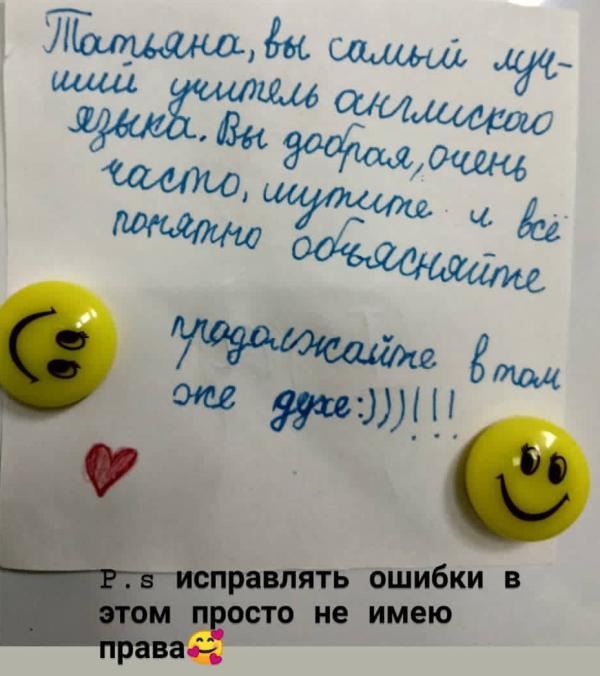 Татьяна, вы самый луч-
ший учитель англиского
языка. Вы добрая, очень
часто, шутите и всё
понятно объясняйте
продолжайте в том
же духе:)))!!!
P.s исправлять ошибки в
этом просто не имею
права🥰